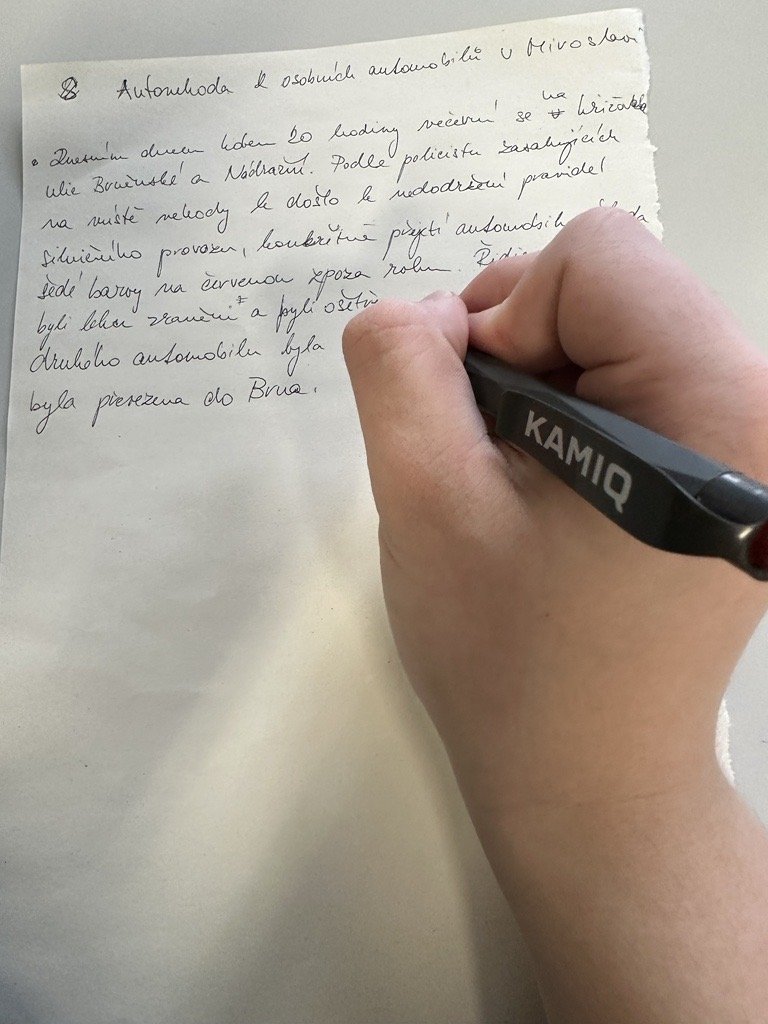 8 Autonehoda 2 osobních automobilů v Miroslavi
Dnešním dnem kolem 20 hodiny večerní se na křižovatce
ulic Brněnské a Nádražní. Podle policistů zasahujících
na místě nehody k došlo k nedodržení pravidel
silničního provozu, konkrétně přejetí automobilu
šedé barvy na červenou zpoza rohu.
byli lehce zraněni a byli
druhého automobilu byla
byla převezena do Brna.
KAMIQ